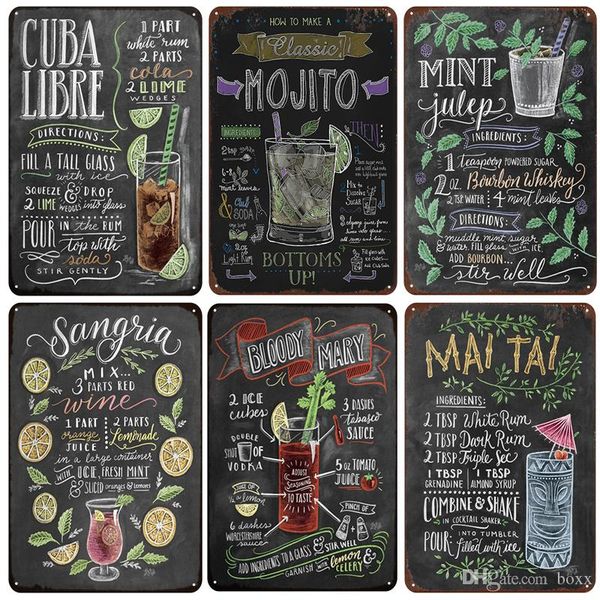 CUBA
LIBRE
1 PART
white rum
2 PARTS
cola
2 LIME
WEDGES
DIRECTIONS:
FILL A TALL GLASS
with ice
SQUEEZE & DROP
2 LIME WEDGES into glass
POUR IN the RUM
TOP with
soda
STIR GENTLY
HOW TO MAKE A
Classic
MOJITO
INGREDIENTS:
2 tsp
sugar
6-8
mint leaves
Club
SODA
1 lime
2 oz
Light Rum
THEN
BOTTOMS
UP!
MINT
julep
INGREDIENTS:
1 Teaspoon POWDERED SUGAR
2 oz. Bourbon Whiskey
2 TSP WATER 4 mint leaves
DIRECTIONS:
muddle mint, sugar
& water, fill glass with ICE
ADD BOURBON...
stir well
Sangria
MIX...
3 PARTS RED
wine
1 PART
orange
JUICE
2 PARTS
Lemonade
in a large container
with ICE, FRESH MINT
& SLICED oranges & lemons
BLOODY MARY
2 ICE
cubes
DOUBLE
SHOT OF
VODKA
JUICE OF
1/2 a lemon
6 dashes
WORCESTERSHIRE
sauce
3 DASHES
tabasco
SAUCE
5 oz TOMATO
JUICE
PINCH OF
ADJUST
SEASONING
TO TASTE
ADD INGREDIENTS TO A GLASS & STIR WELL
GARNISH with lemon
& CELERY
MAI TAI
INGREDIENTS:
2 TBSP White Rum
2 TBSP Dark Rum
2 TBSP Triple Sec
1 TBSP
GRENADINE
1 TBSP
ALMOND SYRUP
COMBINE & SHAKE
IN COCKTAIL SHAKER
POUR INTO TUMBLER
filled with ice
DHgate.com boxx